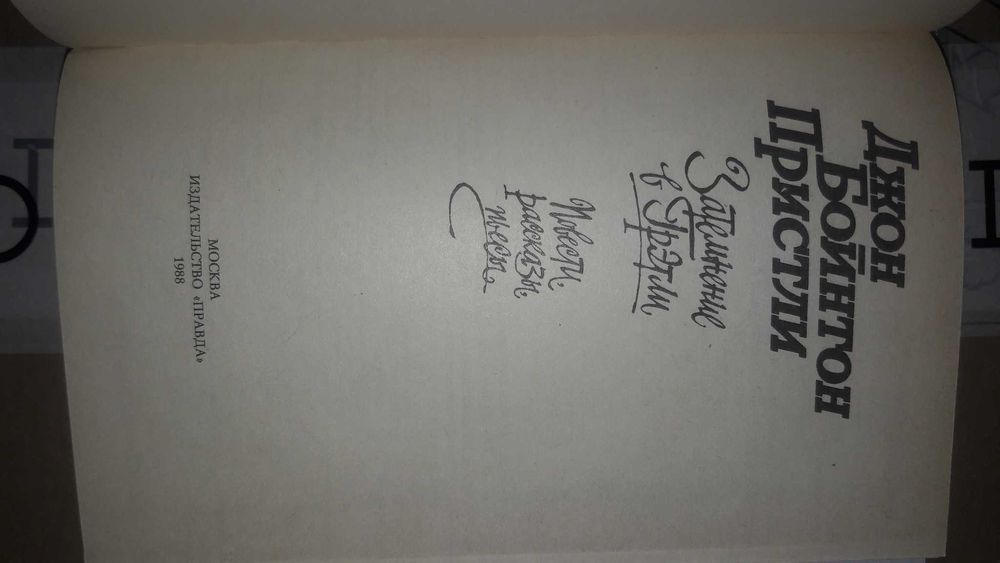 Джон
Бойнтон
Пристли
Затемнение
в Грэтли
Повести,
рассказы,
пьесы
МОСКВА
ИЗДАТЕЛЬСТВО «ПРАВДА»
1988